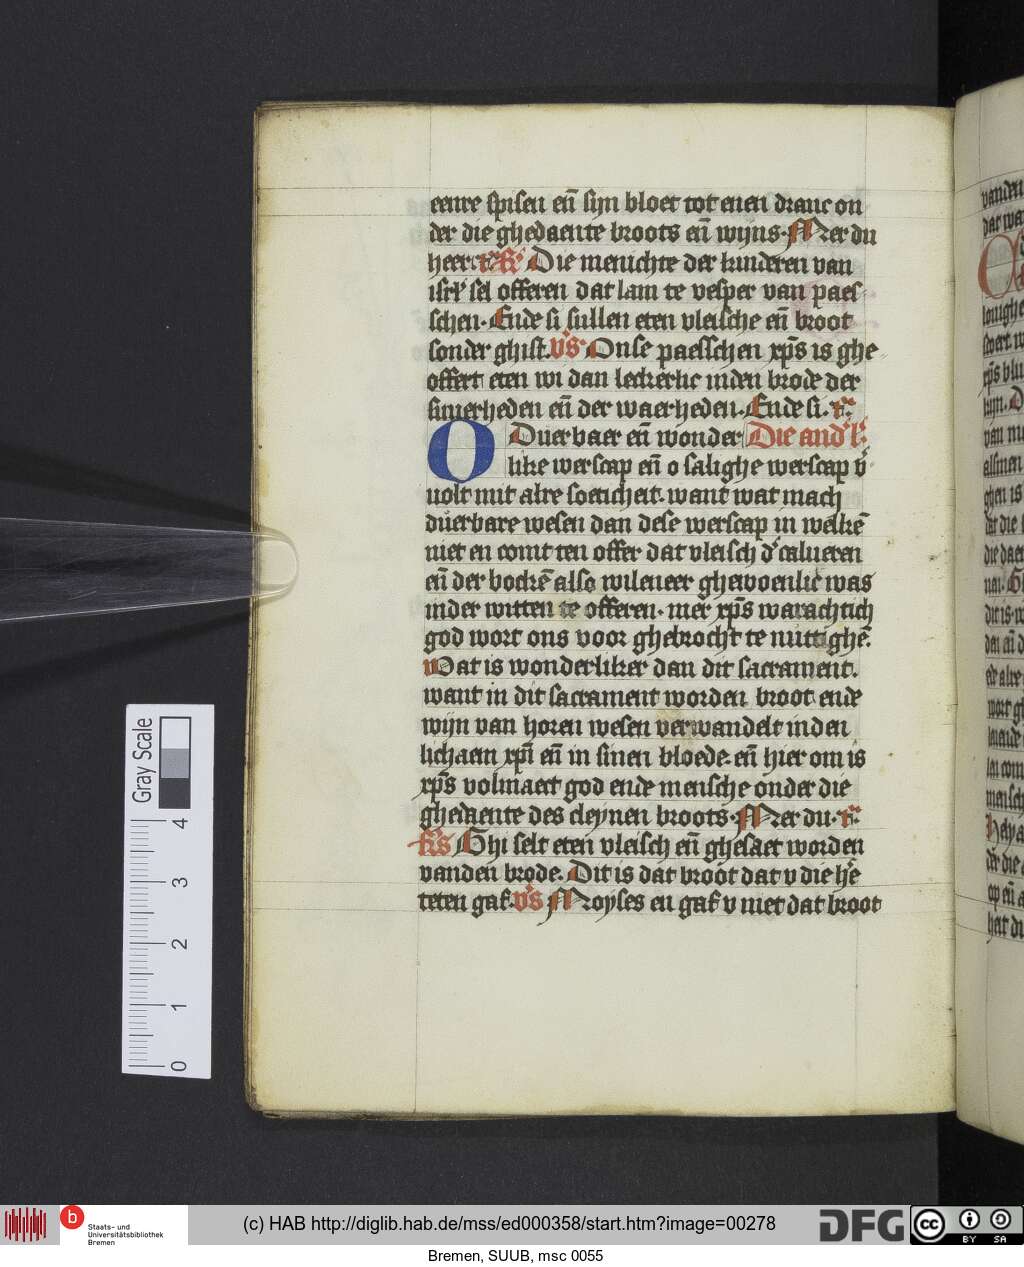 eenre spisen eñ sijn bloet tot enen dranc on
der die ghedaente broots eñ wijns. Mer du
heer. Die menichte der kinderen van
isrl' sel offeren dat lam te vesper van paes
schen. Ende si sullen eten vleische eñ broot
sonder ghist. v's Onse paesschen xp̄s is ghe
offert eten wi dan leckerlic inden brode der
simerheden eñ der waerheden. Ende si. r'
O Duerbaer eñ wonder Die and' l'
like werscap eñ o salighe werscap v'
uolt mit alre soeticheit. want wat mach
duerbare wesen dan dese werscap in welkē
niet en comt ten offer dat vleisch d' calueren
eñ der bockē also wileneer ghewoenlic was
inder witten te offeren. mer xp̄s warachtich
god wort ons voor ghebrocht te nuttighē.
Wat is wonderliker dan dit sacrament.
want in dit sacrament worden broot ende
wijn van horen wesen verwandelt inden
lichaem xp̄i eñ in sinen bloede. eñ hier om is
xp̄s volmaect god ende mensche onder die
ghedaente des cleynen broots. Mer du. r'
Ghi selt eten vleisch eñ ghesaet worden
vanden brode. Dit is dat broot dat v die hē
teren gaf. v's Moyses en gaf v niet dat broot
Gray Scale
4
3
2
1
0
b
Staats- und
Universitätsbibliothek
Bremen
(c) HAB http://diglib.hab.de/mss/ed000358/start.htm?image=00278
DFG
cc
BY
SA
Bremen, SUUB, msc 0055